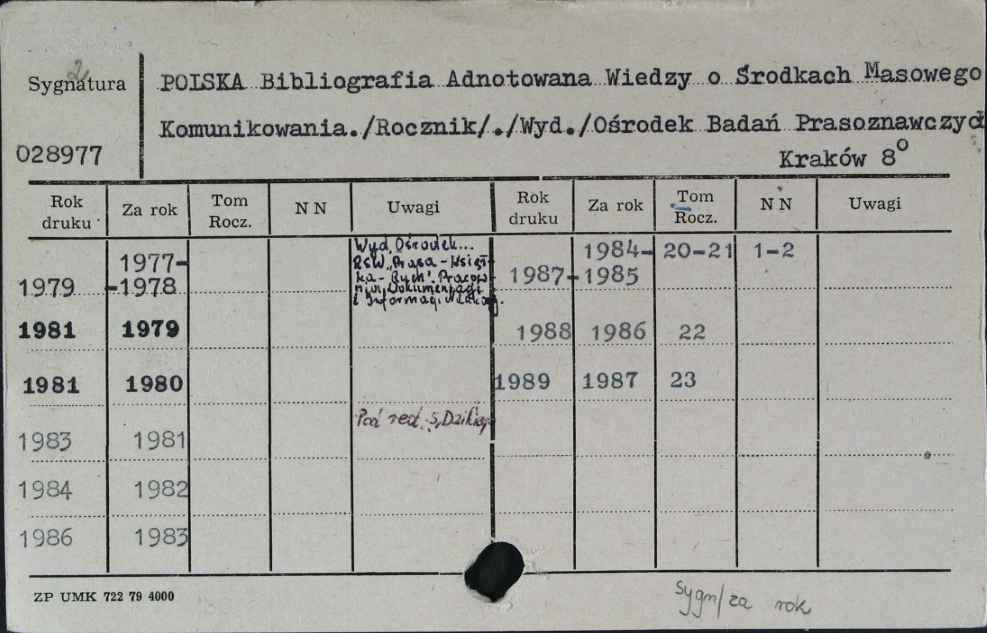 2
Sygnatura
POLSKA Bibliografia Adnotowana Wiedzy o Środkach Masowego
Komunikowania./Rocznik/./Wyd./Ośrodek Badań Prasoznawczych
028977
Kraków 8°
Rok druku Za rok Tom Rocz. N N Uwagi Rok druku Za rok Tom Rocz. N N Uwagi
1979 1977-1978 1987- 1984-1985 20-21 1-2
Wyd. Ośrodek...
RSW „Prasa - Książ-
ka - Ruch". Pracow
nia Dokumentacji
i Informacji
1981 1979 1988 1986 22
1981 1980 1989 1987 23
1983 1981 Pod red. S. Dzikiego
1984 1982
1986 1983
ZP UMK 722 79 4000
Sygn/za rok